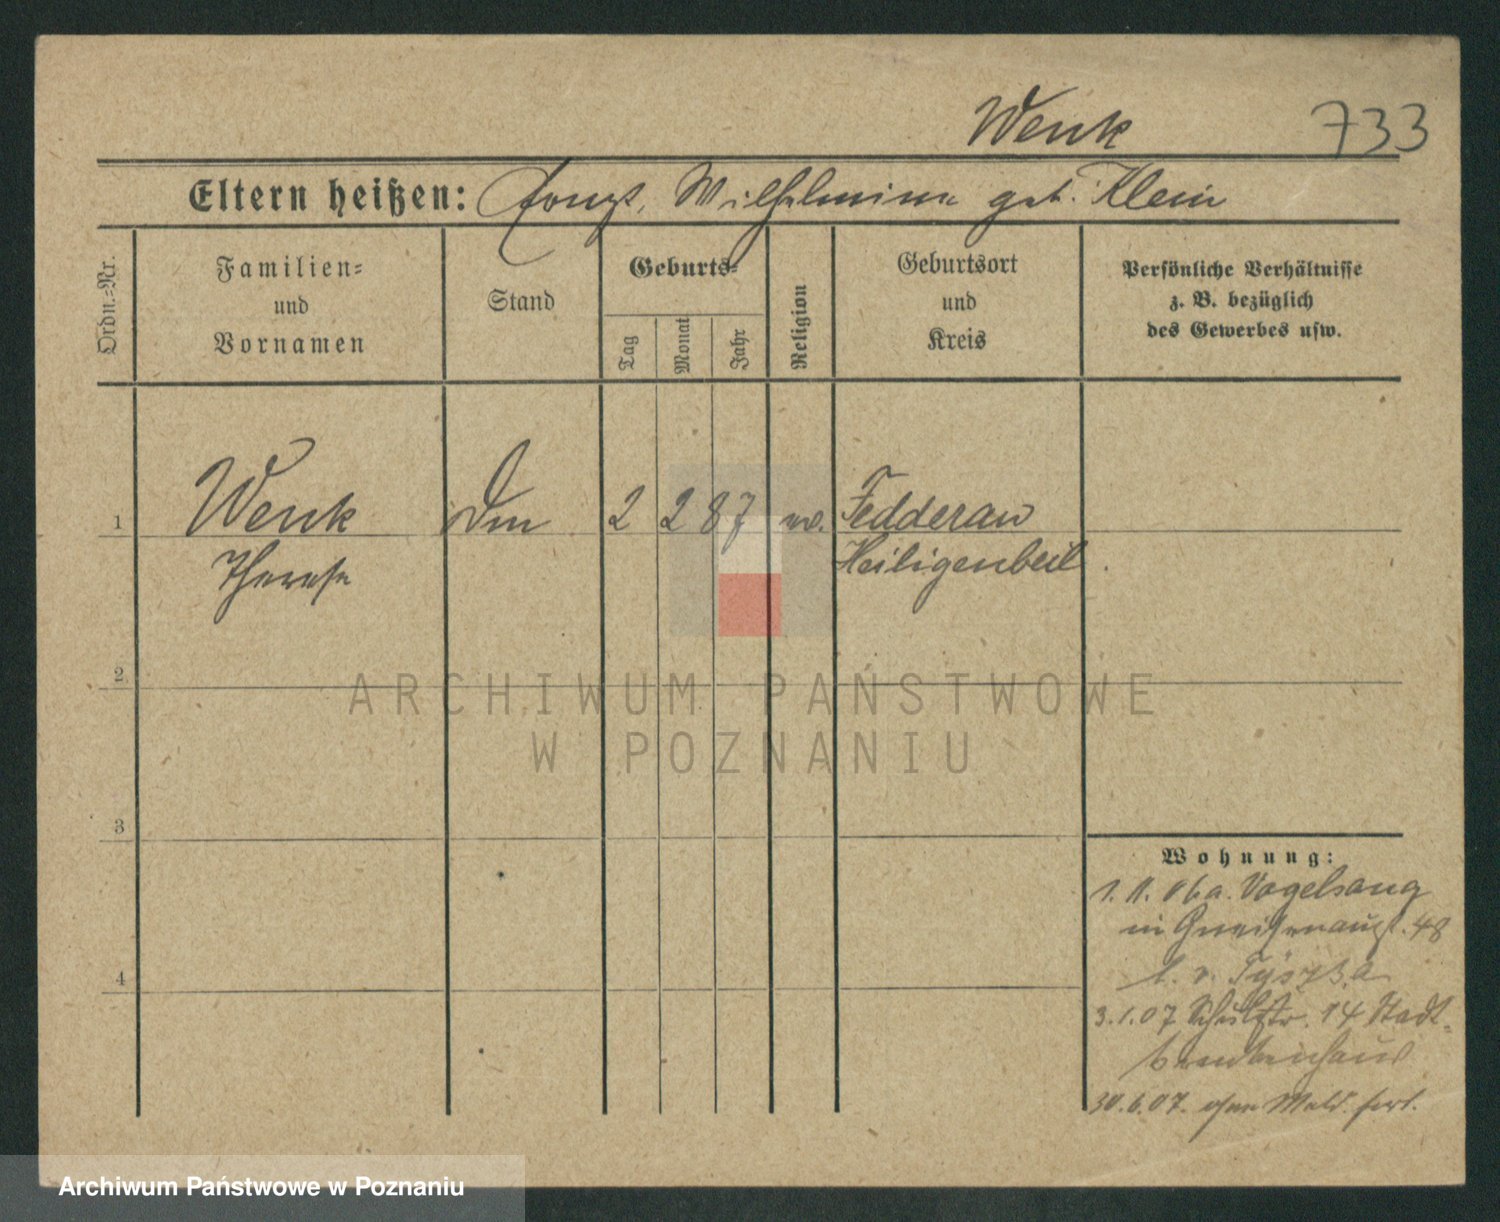 Wenk 733
Eltern heißen: Wilhelmine geb. Klein
Ordn.-Nr.
Familien-
und
Vornamen
Stand
Geburts-
Tag
Monat
Jahr
Religion
Geburtsort
und
Kreis
Persönliche Verhältnisse
z. B. bezüglich
des Gewerbes usw.
1 Wenk 2 2 87 Fedderau
Therese Heiligenbeil
2
3
4
Wohnung:
1. 11. 06 a. Vogelsang
in Gneisenaust. 48
b. v. Tyszka
3.1.07 Schulstr. 14 Stadt-
krankenhaus
30.6.07. ohne Meld. fort.
ARCHIWUM PAŃSTWOWE
W POZNANIU
Archiwum Państwowe w Poznaniu